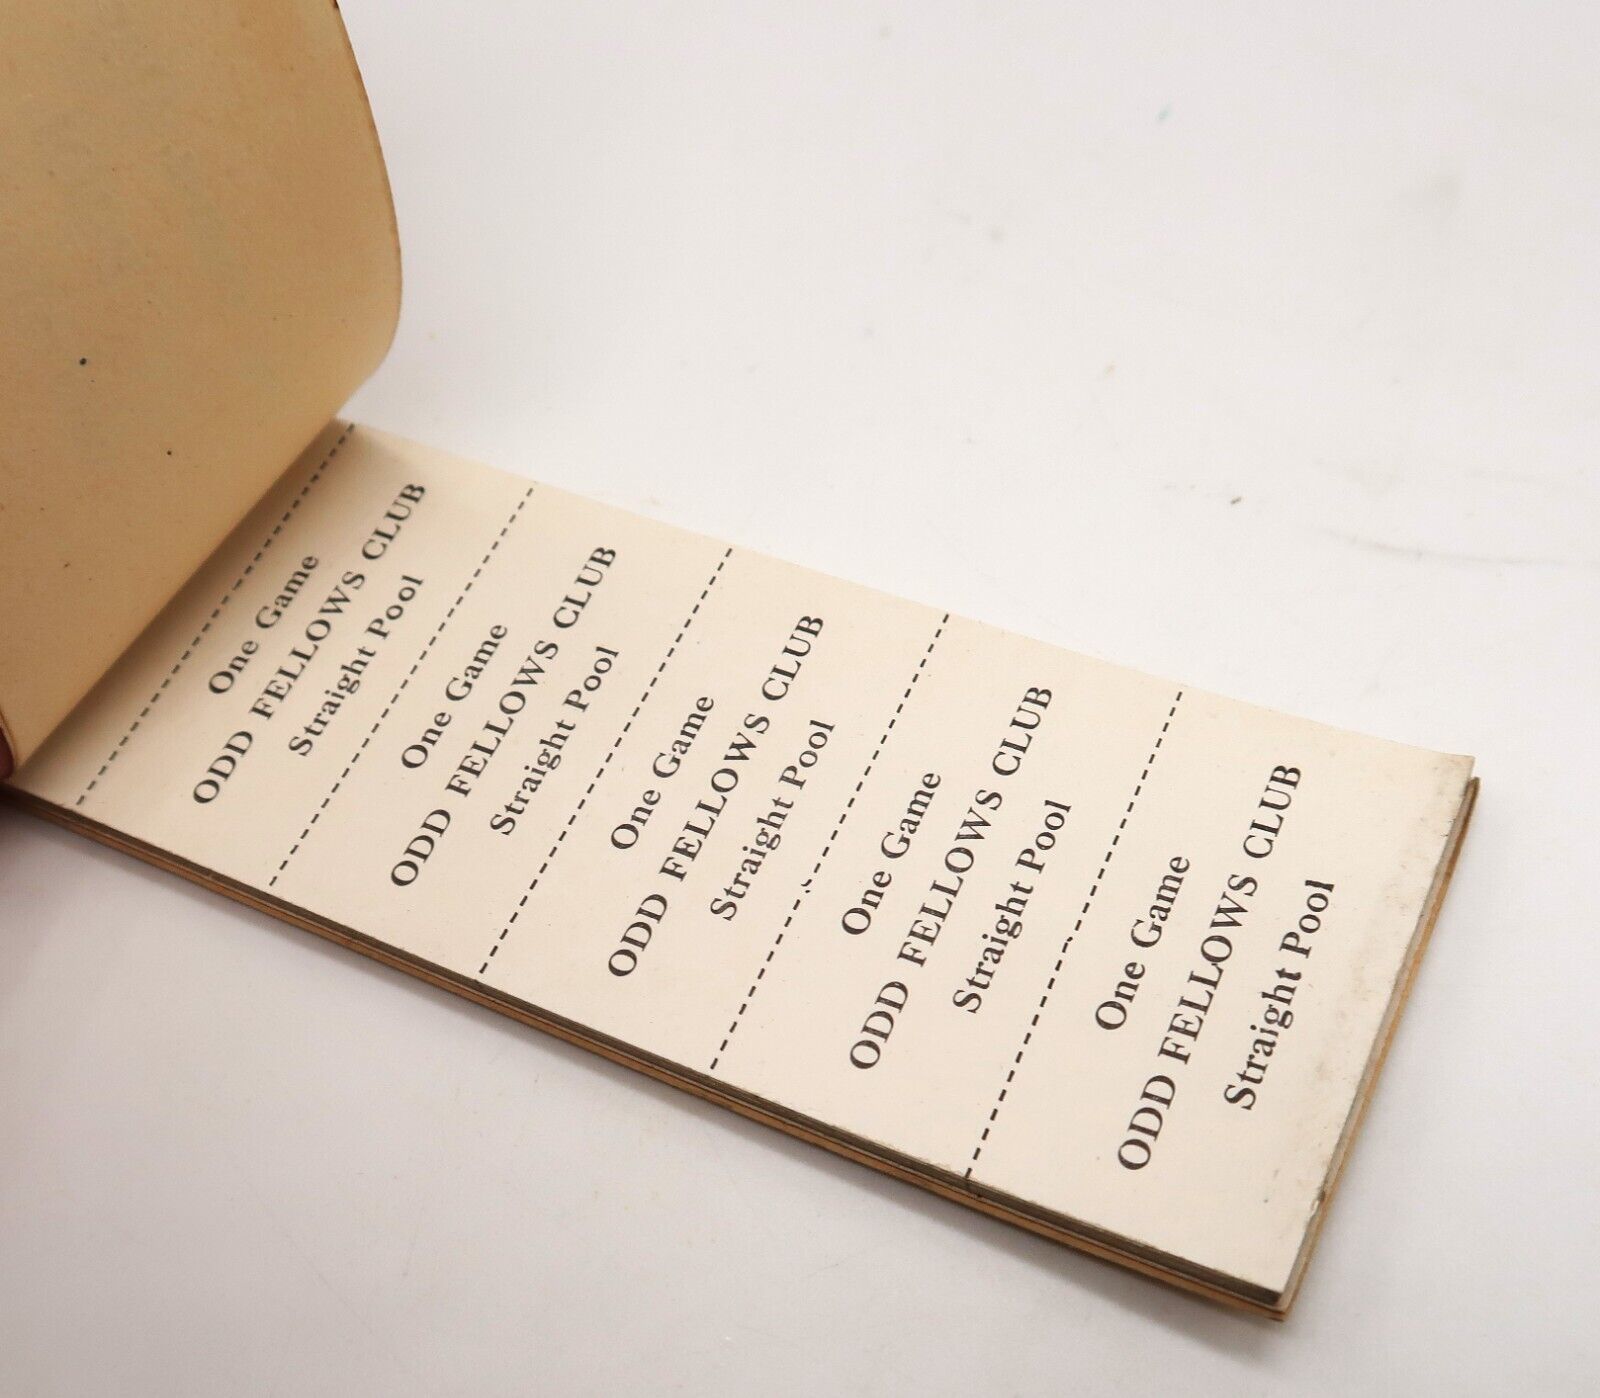 One Game
ODD FELLOWS CLUB
Straight Pool
One Game
ODD FELLOWS CLUB
Straight Pool
One Game
ODD FELLOWS CLUB
Straight Pool
One Game
ODD FELLOWS CLUB
Straight Pool
One Game
ODD FELLOWS CLUB
Straight Pool